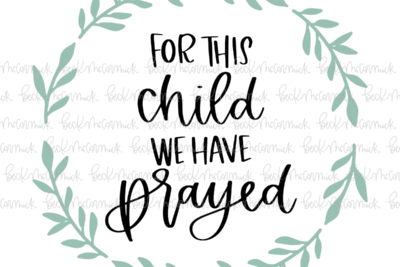 FOR THIS
child
WE HAVE
prayed